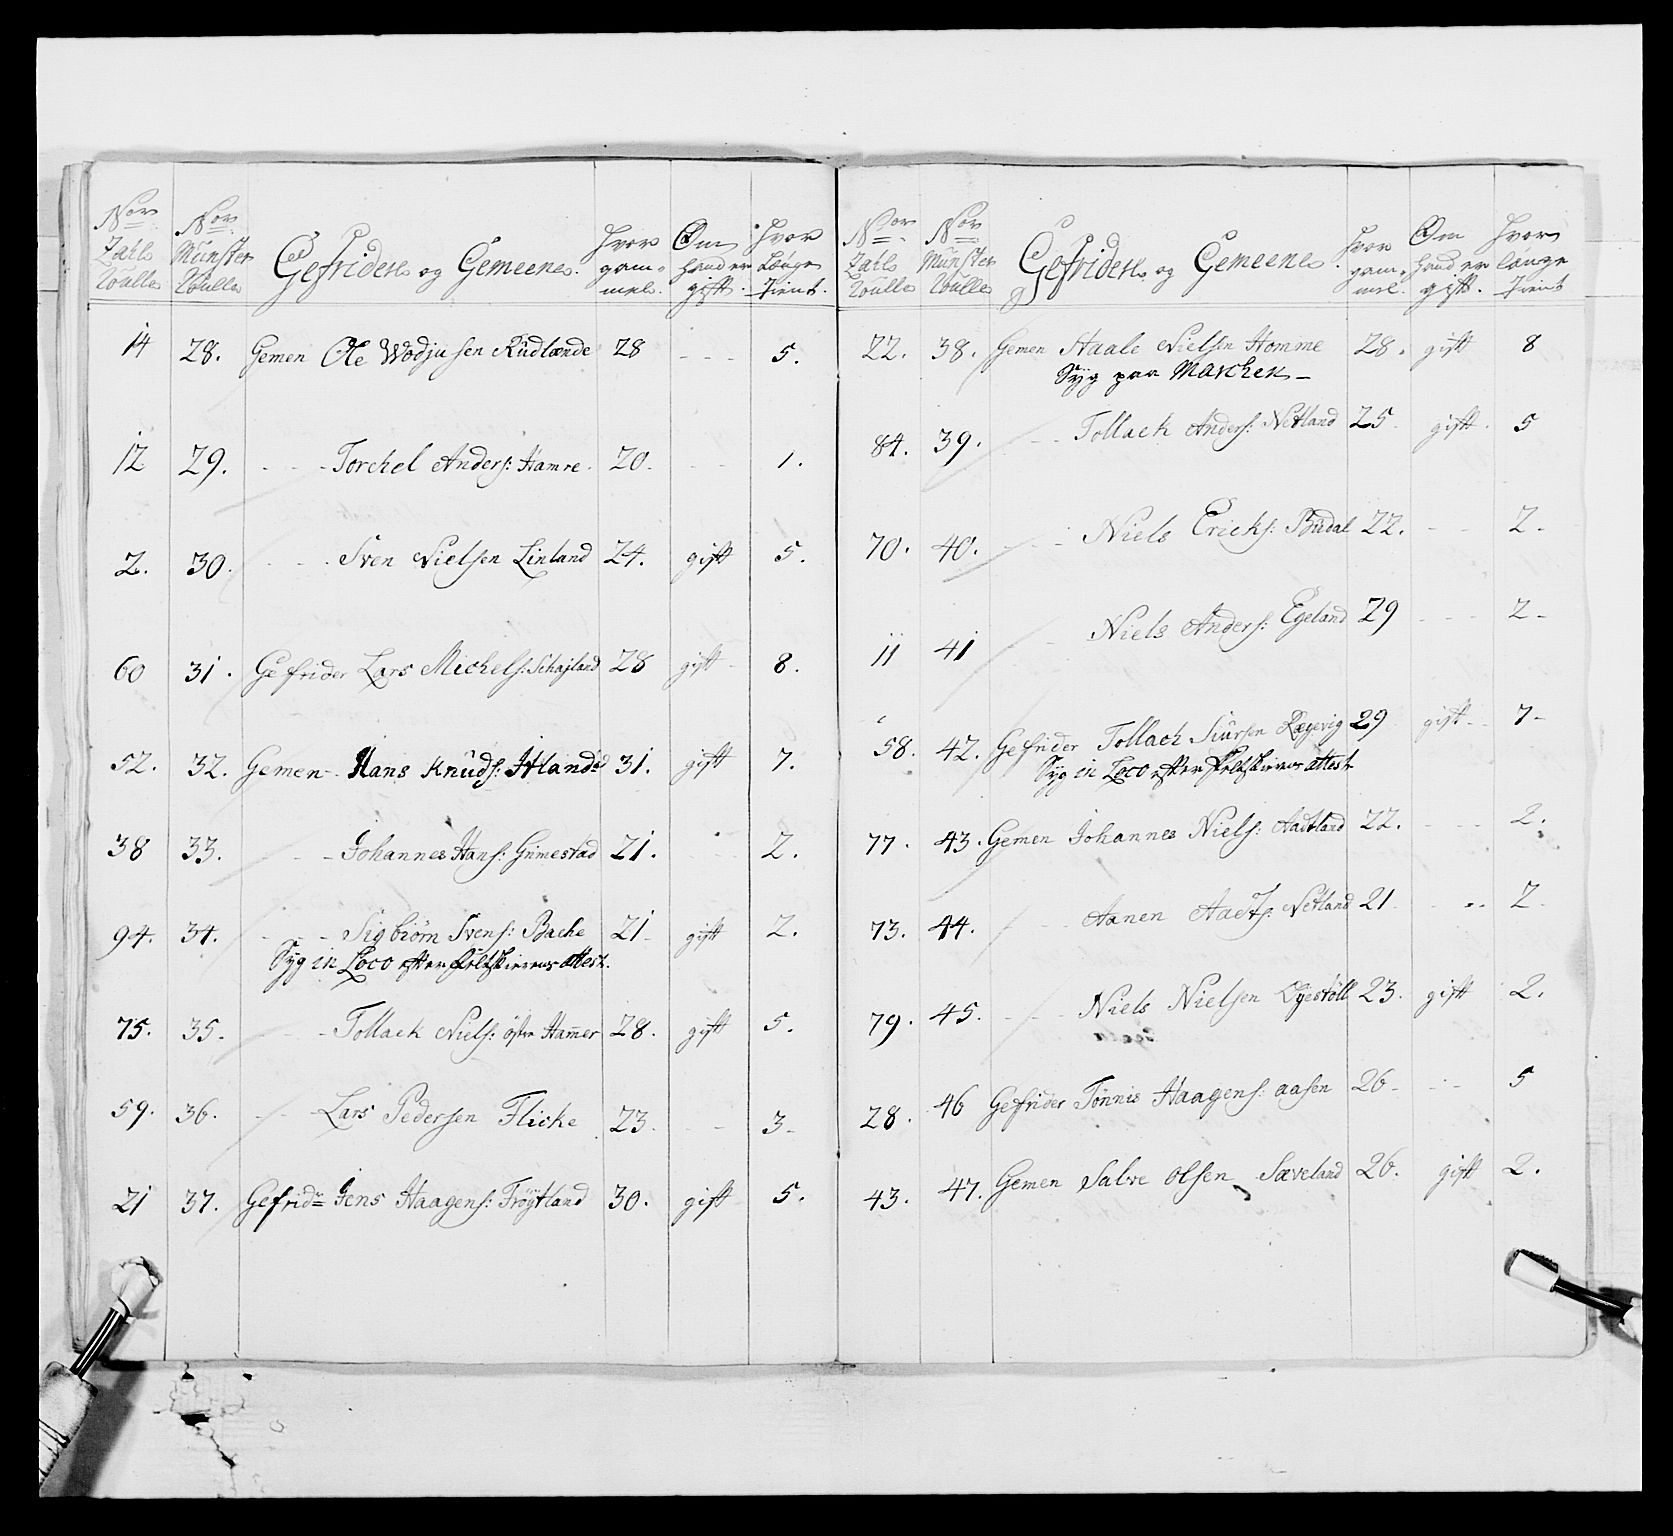 Nor Zahl Roulle | Nor Münster Roulle | Gefridere og Gemeene. | Hvor gam- mel. | Om hand er gift. | Hvor Længe Tient.
14 28. Gemen Ole Wodjusen Rudlande 28 - - - 5.
12 29. - - - Torchel Anders: Hamre. 20. - - 1.
2. 30. - - - Sven Nielsen Linland 24. gift 5.
60 31. Gefrider Lars Michels: Schajland 28 gift 8.
52. 32. Gemen - Hans Knuds: Itland 31. gift 7.
38 33. - - Johannes Hans: Grimestad 21. - - 2.
94. 34. - - - Sigbiörn Svens: Bache 21 gift 2.
Syg in Loco efter Feltskierens attest.
75. 35. - - Tollack Niels: öfre Hamer 28. gift 5.
59. 36. - - - Lars Pedersen Flicke 23. - - 3.
21 37. Gefridr Jens Haagens: Fröytland 30. gift 5.
Nor Zahl Roulle | Nor Münster Roulle | Gefridere og Gemeene. | Hvor gam- mel. | Om hand er gift. | Hvor længe Tient
22. 38. Gemen Staale Nielsen Homme 28. gift 8
Syg paa Marchen -
84. 39. - - Tollack Anders: Netland 25 gift. 5
70. 40. - - Niels Ericks: Budal 22. - - 2.
11 41 - Niels Anders: Egeland 29 - - - 2 -
58. 42. Gefrider Tollach Siursen Rægevig 29 gift - 7 -
Syg in Loco efter Feltskierens attest
77. 43. Gemen Johannes Niels: Aadtland 22. - - 2.
73. 44. - - Aanen Aadts: Netland 21 - - 2
79. 45. - - Niels Nielsen Öyestöll 23. gift 2.
28. 46 Gefrider Tönnis Haagens: aasen 26 - - - 5
43. 47. Gemen Salve olsen Sæveland 26. gift 2.